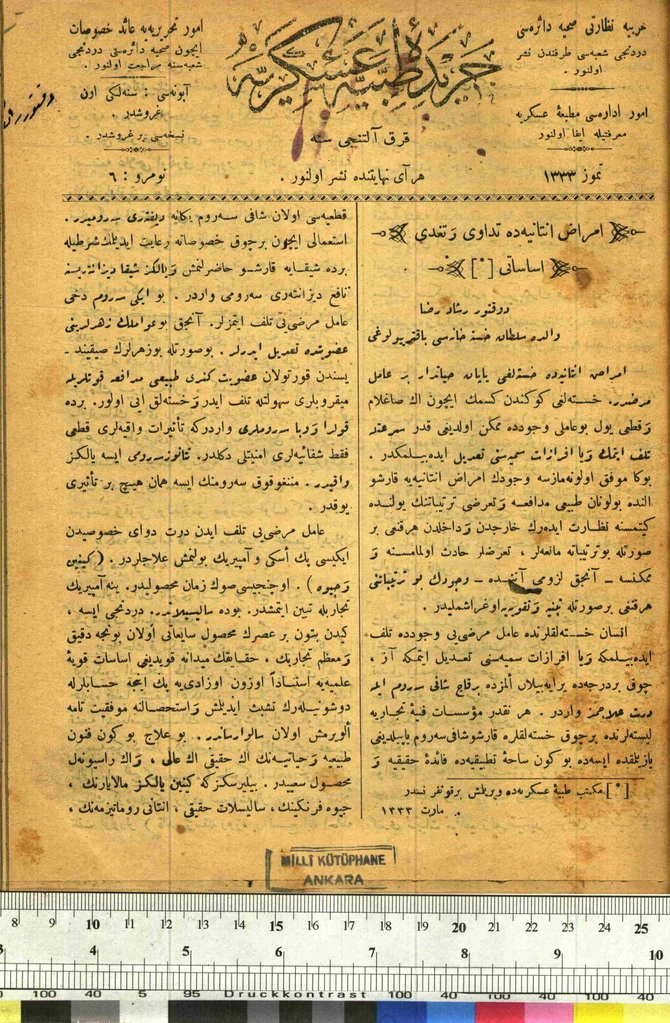 حربیه نظارتی صحیه دائره‌سی
دردنجی شعبه‌سی طرفندن نشر
اولنور .
امور اداره‌سی مطبعۀ عسکریه
معرفتیله ایفا اولنور
تموز ١٣٣٣
جریدۀ طبیۀ عسکریه
قرق آلتنجی سنه
هر آی نهایتنده نشر اولنور .
امور تحریریه‌یه عائد خصوصات
ایچون صحیه دائره‌سی دردنجی
شعبه‌سنه مراجعت اولنور .
آبونه‌سی : سنه‌لکی اون
غروشدر .
نسخه‌سی بر غروشدر .
نومرو : ٦
امراض انتانیه‌ده تداوی و تغدی
اساساتی [*]
دوقتور رشاد رضا
والده سلطان خسته خانه‌سی باقتریولوغی
امراض انتانیه‌ده خسته‌لغی یاپان حیاتدار بر عامل
مرضدر . خسته‌لغی کوکندن کسمك ایچون اك صاغلام
و قطعی یول بو عاملی وجودده ممکن اولدیغی قدر سرعتله
تلف ایتمك ویا افرازات سمیه‌سنی تعدیل ایده‌بیلمکدر .
بوکا موفق اولونه‌مازسه وجودك امراض انتانیه‌یه قارشو
النده بولونان طبیعی مدافعه و تعرضی ترتیباتنك یولنده
کیتمسنه نظارت ایده‌رك خارجدن و داخلدن هرقنغی بر
صورتله بو ترتیباته مانعه‌لر ، تعرضلر حادث اولمامسنه و
ممکنسه – آنجق لزومی آننده – وجودك بو ترتیباتنی
هرقنغی برصورتله تنبیه و تقویه‌یه اوغراشملیدر .
انسان خسته‌لقلرنده عامل مرضی‌یی وجودده تلف
ایده‌بیلمکه ویا افرازات سمیه‌سنی تعدیل ایتمکه آز ،
چوق بردرجه‌ده یرایه‌بیلان المزده برقاچ شافی سه‌روم ایله
درت علاجمز واردر . هر نقدر مؤسسات فنیۀ تجاریه
لیسته‌لرنده برچوق خسته‌لقلره قارشو شافی سه‌روم یاپیلدیغی
یازیلمقده ایسه‌ده بو کون ساحۀ تطبیقیه‌ده فائدۀ حقیقیه و
[*] مکتب طبیۀ عسکریه‌ده ویریلمش برقونفرانسدر
مارت ١٣٣٣ .
قطعیه‌سی اولان شافی سه‌روم یکانه دیفتری سه‌رومیدر .
استعمالی ایچون برچوق خصوصاته رعایت ایدیلمك شرطیله
برده شیقایه قارشو حاضرلنمش و یالکز شیقا دیزانتریسنه
نافع دیزانته‌ری سه‌رومی واردر . بو ایکی سه‌روم دخی
عامل مرضی‌یی تلف ایتمزلر. آنجق بو عواملك زهرلرینی
عضویتده تعدیل ایدرلر . بوصورتله بوزهرلرك صیقیند –
یسندن قورتولان عضویت کندی طبیعی مدافعه قوتلریله
میقروبلری سهولتله تلف ایدر و خسته‌لق ایی اولور. برده
قولرا و وبا سه‌روملری واردرکه تأثیرات واقیه‌لری قطعی
فقط شفائیه‌لری امنیتلی دکلدر. تتانوز سه‌رومی ایسه یالکز
واقیدر . مننغوقوق سه‌رومنك ایسه همان هیچ بر تأثیری
یوقدر .
عامل مرضی‌یی تلف ایدن درت دوای خصوصیدن
ایکیسی پك أسکی و آمپیریك بولنمش علاجلردر . (کینین
و جیوه) . اوچنجیسی صوك زمان محصولیدر. ینه آمپیریك
تجاربله تبین ایتمشدر. بوده سالیسیلاتدر. دردنجی ایسه ،
کیدن بتون بر عصرك محصول سایعاتی اولان بونجه دقیق
و معظم تجاربك ، حقایقك میدانه قویدیغی اساسات قویۀ
علمیه‌یه استناداً اوزون اوزادی‌یه پك اینجه حسابلرله
دوشونیله‌رك تشبث ایدیلمش و استحصالنه موفقیت تامه
ألویرمش اولان سالوارساندر . بو علاج بو کون فنون
طبیعیه و حیاتیه‌نك اك حقیقی اك عالی ، و اك راسیونه‌ل
محصول سعییدر . بیلیرسکزکه کینین یالکز مالاریانك ،
جیوه فرنکینك ، سالیسلات حقیقی ، انتانی روماتیزمه‌نك ،
MİLLÎ KÜTÜPHANE
ANKARA
8 9 10 11 12 13 14 15 16 17 18 19 20 21 22 23 24 25
3 4 5 6 7 8 9 10
0 100 40 5 95 Druckkontrast 100 40 100 40 100 40 100